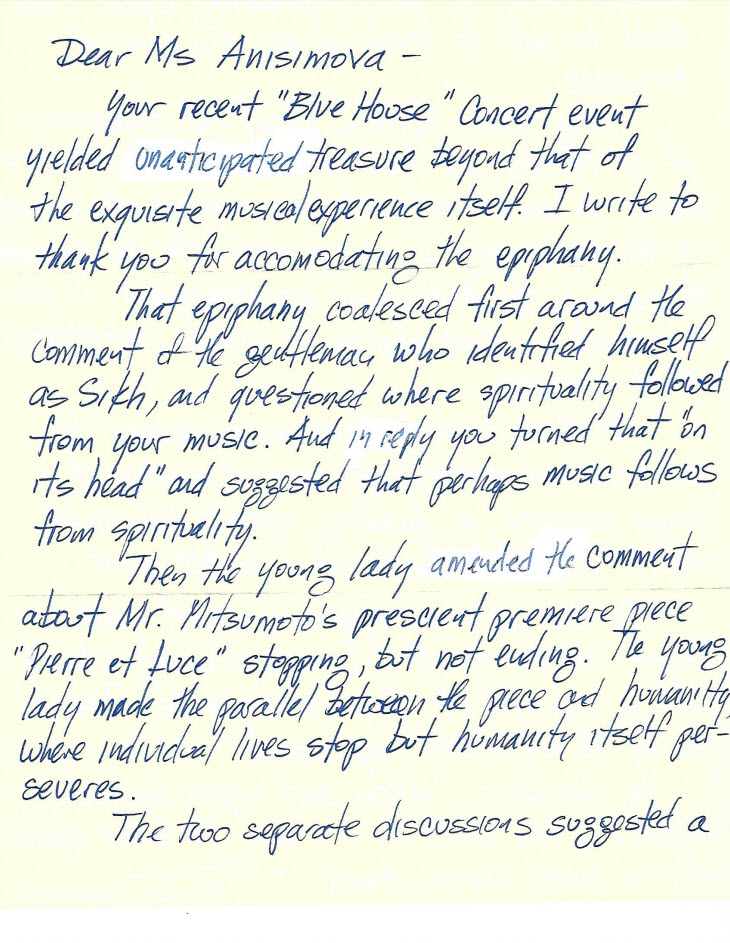 Dear Ms Anisimova –
Your recent "Blue House" Concert event
yielded unanticipated treasure beyond that of
the exquisite musical experience itself. I write to
thank you for accomodating the epiphany.
That epiphany coalesced first around the
comment of the gentleman who identified himself
as Sikh, and questioned where spirituality followed
from your music. And in reply you turned that "on
its head" and suggested that perhaps music follows
from spirituality.
Then the young lady amended the comment
about Mr. Mitsumoto's prescient premiere piece
"Pierre et Luce" stopping, but not ending. The young
lady made the parallel between the piece and humanity,
where individual lives stop but humanity itself per-
severes.
The two separate discussions suggested a